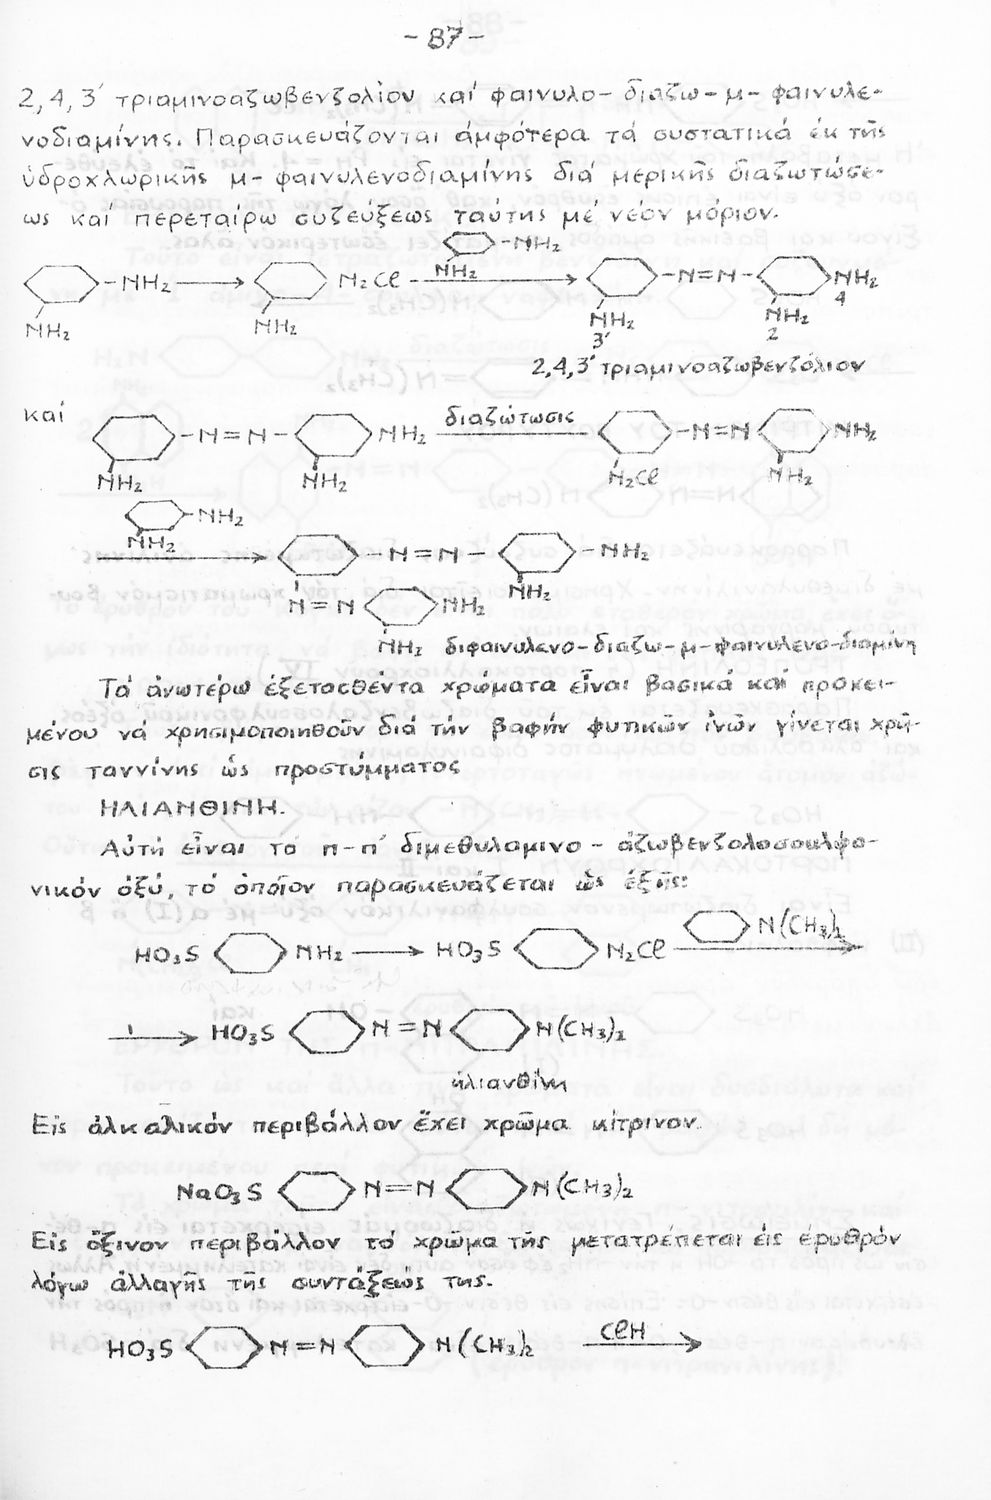 -87-
2,4,3' τριαμινοαζωβενζολίον καί φαινυλο-διαζω-μ-φαινυλε-
νοδιαμίνης. Παρασκευάζονται ἀμφότερα τά συστατικά ἐκ τῆς
ὑδροχλωρικῆς μ-φαινυλενοδιαμίνης διά μερικῆς διαζωτώσε-
ως καί περεταίρω συζεύξεως ταύτης μέ νέον μόριον.
-NH2
NH2
-NH2 → N2Cl → -N=N- NH2
4
NH2 NH2 NH2 NH2
3' 2
2,4,3' τριαμινοαζωβενζόλιον
καί
-N=N- NH2 διαζώτωσις -N=N- NH2
NH2 NH2 N2Cl NH2
-NH2
NH2
→ -N=N- -NH2
NH2
N=N NH2
NH2 διφαινυλενο-διαζω-μ-φαινυλενο-διαμίνη
Τά ἀνωτέρω ἐξετασθέντα χρώματα εἶναι βασικά καί προκει-
μένου νά χρησιμοποιηθοῦν διά τήν βαφήν φυτικῶν ἰνῶν γίνεται χρῆ-
σις ταννίνης ὡς προστύμματος
ΗΛΙΑΝΘΙΝΗ.
Αὐτή εἶναι τό π-π' διμεθυλαμινο-ἀζωβενζολοσουλφο-
νικόν ὀξύ, τό ὁποῖον παρασκευάζεται ὡς ἑξῆς:
HO3S NH2 → HO3S N2Cl N(CH3)2 →
→ HO3S N=N N(CH3)2
ἡλιανθίνη
Εἰς ἀλκαλικόν περιβάλλον ἔχει χρῶμα κίτρινον.
NaO3S N=N N(CH3)2
Εἰς ὄξινον περιβάλλον τό χρῶμα τῆς μετατρέπεται εἰς ἐρυθρόν
λόγω ἀλλαγῆς τῆς συντάξεώς της.
HO3S N=N N(CH3)2 ClH →